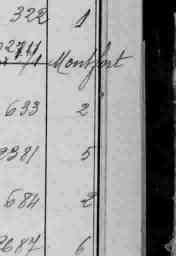 322 1
Montfort
633 2
2381 5
684 2
2687 6